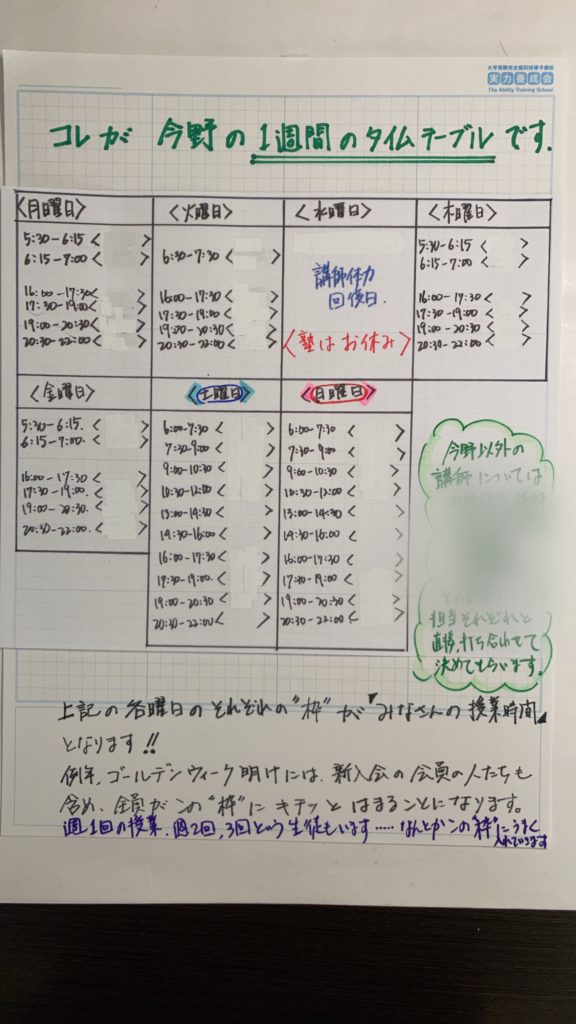 大学受験完全個別指導予備校
実力養成会
The Ability Training School
コレが 今野の1週間のタイムテーブルです.
〈月曜日〉
5:30-6:15 < >
6:15-7:00 < >
16:00-17:30 < >
17:30-19:00 < >
19:00-20:30 < >
20:30-22:00 < >
〈火曜日〉
6:30-7:30 < >
16:00-17:30 < >
17:30-19:00 < >
19:00-20:30 < >
20:30-22:00 < >
〈水曜日〉
講師体力
回復日.
〈塾はお休み〉
〈木曜日〉
5:30-6:15 < >
6:15-7:00 < >
16:00-17:30 < >
17:30-19:00 < >
19:00-20:30 < >
20:30-22:00 < >
〈金曜日〉
5:30-6:15. < >
6:15-7:00. < >
16:00-17:30 < >
17:30-19:00. < >
19:00-20:30. < >
20:30-22:00. < >
〈土曜日〉
6:00-7:30 < >
7:30-9:00 < >
9:00-10:30 < >
10:30-12:00 < >
13:00-14:30 < >
14:30-16:00 < >
16:00-17:30 < >
17:30-19:00. < >
19:00-20:30 < >
20:30-22:00 < >
〈月曜日〉
6:00-7:30 < >
7:30-9:00 < >
9:00-10:30 < >
10:30-12:00 < >
13:00-14:30 < >
14:30-16:00 < >
16:00-17:30 < >
17:30-19:00 < >
19:00-20:30 < >
20:30-22:00 < >
今野以外の
講師については
担当それぞれと
直接、打ち合わせて
決めてもらいます.
上記の各曜日のそれぞれの"枠"が『みなさんの授業時間』
となります!!
例年、ゴールデンウィーク明けには、新入会の会員の人たちも
含め、全員がこの"枠"にキチッとはまることになります。
週1回の授業、週2回、3回という生徒もいます……なんとかこの"枠"にうまく
入れていきます